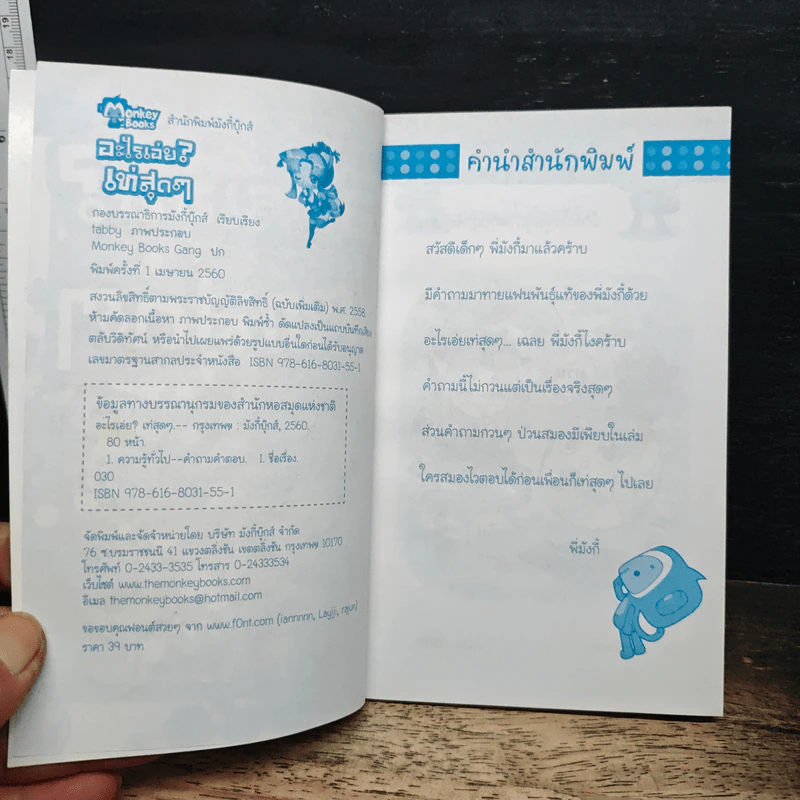 Monkey Books สำนักพิมพ์มังกี้บุ๊กส์
อะไรเอ่ย?
เท่สุดๆ
กองบรรณาธิการมังกี้บุ๊กส์ เรียบเรียง
tabby ภาพประกอบ
Monkey Books Gang ปก
พิมพ์ครั้งที่ 1 เมษายน 2560
สงวนลิขสิทธิ์ตามพระราชบัญญัติลิขสิทธิ์ (ฉบับเพิ่มเติม) พ.ศ. 2558
ห้ามคัดลอกเนื้อหา ภาพประกอบ พิมพ์ซ้ำ ดัดแปลงเป็นแถบบันทึกเสียง
ตลับวิดีทัศน์ หรือนำไปเผยแพร่ด้วยรูปแบบอื่นใดก่อนได้รับอนุญาต
เลขมาตรฐานสากลประจำหนังสือ ISBN 978-616-8031-55-1
ข้อมูลทางบรรณานุกรมของสำนักหอสมุดแห่งชาติ
อะไรเอ่ย? เท่สุดๆ.-- กรุงเทพฯ : มังกี้บุ๊กส์, 2560.
80 หน้า.
1. ความรู้ทั่วไป--คำถามคำตอบ. I. ชื่อเรื่อง.
030
ISBN 978-616-8031-55-1
จัดพิมพ์และจัดจำหน่ายโดย บริษัท มังกี้บุ๊กส์ จำกัด
76 ซ.บรมราชชนนี 41 แขวงตลิ่งชัน เขตตลิ่งชัน กรุงเทพฯ 10170
โทรศัพท์ 0-2433-3535 โทรสาร 0-24333534
เว็บไซต์ www.themonkeybooks.com
อีเมล themonkeybooks@hotmail.com
ขอขอบคุณฟอนต์สวยๆ จาก www.f0nt.com (iannnnn, Layiji, rajun)
ราคา 39 บาท
คำนำสำนักพิมพ์
สวัสดีเด็กๆ พี่มังกี้มาแล้วคร้าบ
มีคำถามมาทายแฟนพันธุ์แท้ของพี่มังกี้ด้วย
อะไรเอ่ยเท่สุดๆ... เฉลย พี่มังกี้ไงคร้าบ
คำถามนี้ไม่กวนแต่เป็นเรื่องจริงสุดๆ
ส่วนคำถามกวนๆ ป่วนสมองมีเพียบในเล่ม
ใครสมองไวตอบได้ก่อนเพื่อนก็เท่สุดๆ ไปเลย
พี่มังกี้